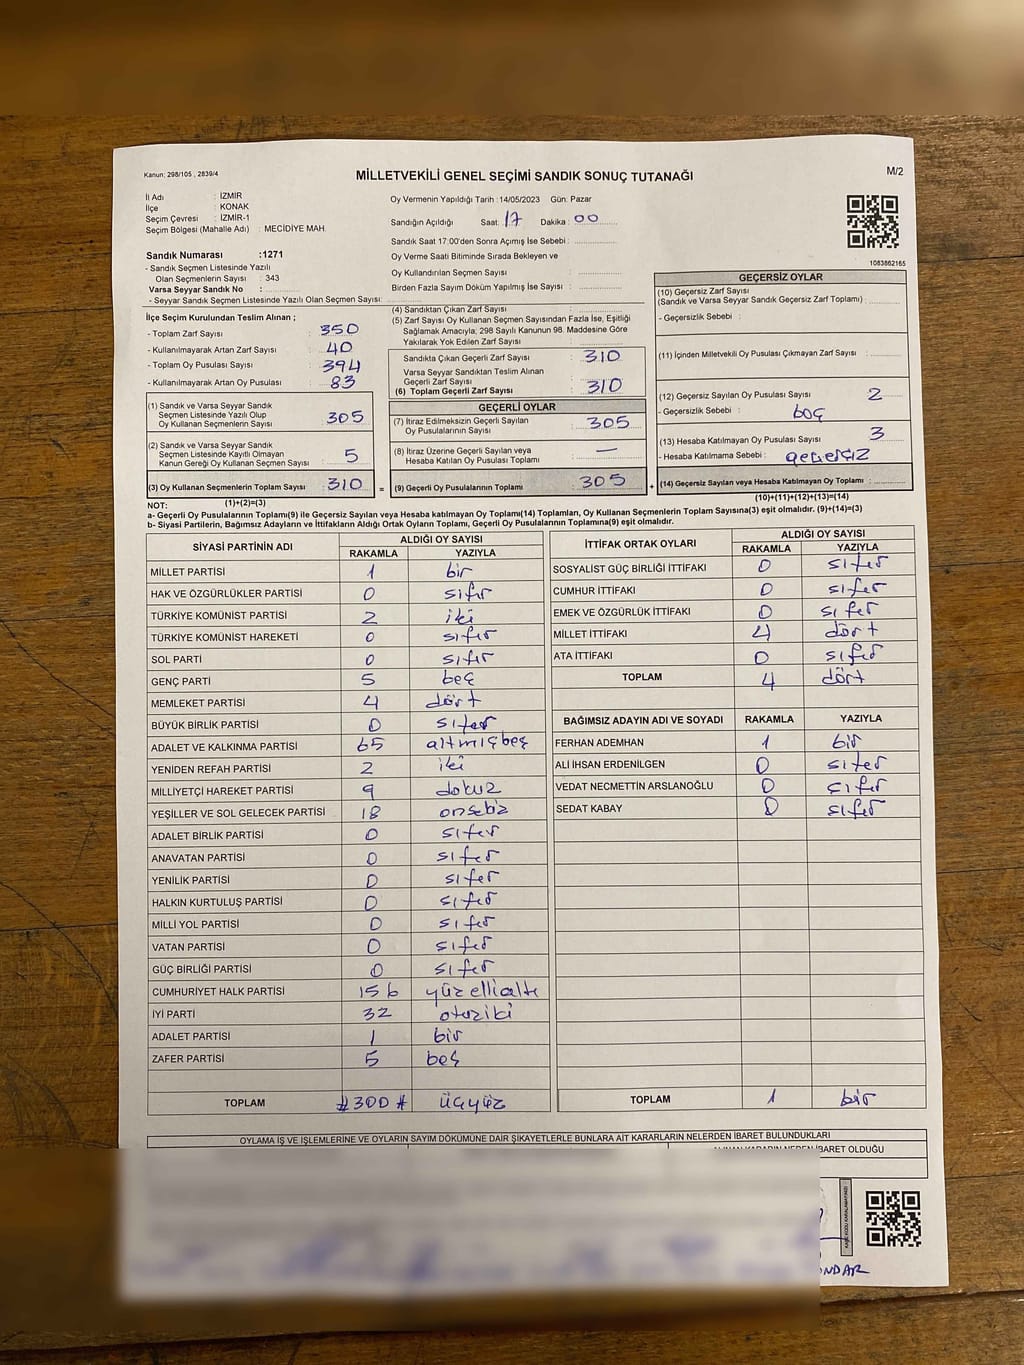 Kanun; 298/105 , 2839/4
MİLLETVEKİLİ GENEL SEÇİMİ SANDIK SONUÇ TUTANAĞI
M/2
İl Adı : İZMİR
İlçe : KONAK
Seçim Çevresi : İZMİR-1
Seçim Bölgesi (Mahalle Adı) : MECİDİYE MAH.
Oy Vermenin Yapıldığı Tarih : 14/05/2023 Gün: Pazar
Sandığın Açıldığı Saat: 17 Dakika : 00
Sandık Saat 17:00'den Sonra Açımış İse Sebebi :
Oy Verme Saati Bitiminde Sırada Bekleyen ve
Oy Kullandırılan Seçmen Sayısı :
Birden Fazla Sayım Döküm Yapılmış İse Sayısı :
1083862165
Sandık Numarası :1271
- Sandık Seçmen Listesinde Yazılı
Olan Seçmenlerin Sayısı : 343
Varsa Seyyar Sandık No :
- Seyyar Sandık Seçmen Listesinde Yazılı Olan Seçmen Sayısı:
İlçe Seçim Kurulundan Teslim Alınan ;
- Toplam Zarf Sayısı : 350
- Kullanılmayarak Artan Zarf Sayısı : 40
- Toplam Oy Pusulası Sayısı : 394
- Kullanılmayarak Artan Oy Pusulası : 83
(1) Sandık ve Varsa Seyyar Sandık
Seçmen Listesinde Yazılı Olup
Oy Kullanan Seçmenlerin Sayısı : 305
(2) Sandık ve Varsa Seyyar Sandık
Seçmen Listesinde Kayıtlı Olmayan
Kanun Gereği Oy Kullanan Seçmen Sayısı : 5
(3) Oy Kullanan Seçmenlerin Toplam Sayısı : 310 =
(4) Sandıktan Çıkan Zarf Sayısı :
(5) Zarf Sayısı Oy Kullanan Seçmen Sayısından Fazla İse, Eşitliği
Sağlamak Amacıyla; 298 Sayılı Kanunun 98. Maddesine Göre
Yakılarak Yok Edilen Zarf Sayısı :
Sandıkta Çıkan Geçerli Zarf Sayısı : 310
Varsa Seyyar Sandıktan Teslim Alınan
Geçerli Zarf Sayısı :
(6) Toplam Geçerli Zarf Sayısı : 310
GEÇERLİ OYLAR
(7) İtiraz Edilmeksizin Geçerli Sayılan
Oy Pusulalarının Sayısı : 305
(8) İtiraz Üzerine Geçerli Sayılan veya
Hesaba Katılan Oy Pusulası Toplamı : —
(9) Geçerli Oy Pusulalarının Toplamı : 305 +
GEÇERSİZ OYLAR
(10) Geçersiz Zarf Sayısı
(Sandık ve Varsa Seyyar Sandık Geçersiz Zarf Toplamı) :
- Geçersizlik Sebebi :
(11) İçinden Milletvekili Oy Pusulası Çıkmayan Zarf Sayısı :
(12) Geçersiz Sayılan Oy Pusulası Sayısı : 2
- Geçersizlik Sebebi : boş
(13) Hesaba Katılmayan Oy Pusulası Sayısı : 3
- Hesaba Katılmama Sebebi : geçersiz
(14) Geçersiz Sayılan veya Hesaba Katılmayan Oy Toplamı :
NOT: (1)+(2)=(3)
(10)+(11)+(12)+(13)=(14)
a- Geçerli Oy Pusulalarının Toplamı(9) ile Geçersiz Sayılan veya Hesaba katılmayan Oy Toplamı(14) Toplamları, Oy Kullanan Seçmenlerin Toplam Sayısına(3) eşit olmalıdır. (9)+(14)=(3)
b- Siyasi Partilerin, Bağımsız Adayların ve İttifakların Aldığı Ortak Oyların Toplamı, Geçerli Oy Pusulalarının Toplamına(9) eşit olmalıdır.
SİYASİ PARTİNİN ADI ALDIĞI OY SAYISI
RAKAMLA YAZIYLA
MİLLET PARTİSİ 1 bir
HAK VE ÖZGÜRLÜKLER PARTİSİ 0 sıfır
TÜRKİYE KOMÜNİST PARTİSİ 2 iki
TÜRKİYE KOMÜNİST HAREKETİ 0 sıfır
SOL PARTİ 0 sıfır
GENÇ PARTİ 5 beş
MEMLEKET PARTİSİ 4 dört
BÜYÜK BİRLİK PARTİSİ 0 sıfır
ADALET VE KALKINMA PARTİSİ 65 altmışbeş
YENİDEN REFAH PARTİSİ 2 iki
MİLLİYETÇİ HAREKET PARTİSİ 9 dokuz
YEŞİLLER VE SOL GELECEK PARTİSİ 18 onsekiz
ADALET BİRLİK PARTİSİ 0 sıfır
ANAVATAN PARTİSİ 0 sıfır
YENİLİK PARTİSİ 0 sıfır
HALKIN KURTULUŞ PARTİSİ 0 sıfır
MİLLİ YOL PARTİSİ 0 sıfır
VATAN PARTİSİ 0 sıfır
GÜÇ BİRLİĞİ PARTİSİ 0 sıfır
CUMHURİYET HALK PARTİSİ 156 yüzellialtı
İYİ PARTİ 32 otuziki
ADALET PARTİSİ 1 bir
ZAFER PARTİSİ 5 beş
TOPLAM #300# üçyüz
İTTİFAK ORTAK OYLARI ALDIĞI OY SAYISI
RAKAMLA YAZIYLA
SOSYALİST GÜÇ BİRLİĞİ İTTİFAKI 0 sıfır
CUMHUR İTTİFAKI 0 sıfır
EMEK VE ÖZGÜRLÜK İTTİFAKI 0 sıfır
MİLLET İTTİFAKI 4 dört
ATA İTTİFAKI 0 sıfır
TOPLAM 4 dört
BAĞIMSIZ ADAYIN ADI VE SOYADI RAKAMLA YAZIYLA
FERHAN ADEMHAN 1 bir
ALİ İHSAN ERDENİLGEN 0 sıfır
VEDAT NECMETTİN ARSLANOĞLU 0 sıfır
SEDAT KABAY 0 sıfır
TOPLAM 1 bir
OYLAMA İŞ VE İŞLEMLERİNE VE OYLARIN SAYIM DÖKÜMÜNE DAİR ŞİKAYETLERLE BUNLARA AİT KARARLARIN NELERDEN İBARET BULUNDUKLARI
ALINAN KARARIN NEDEN İBARET OLDUĞU